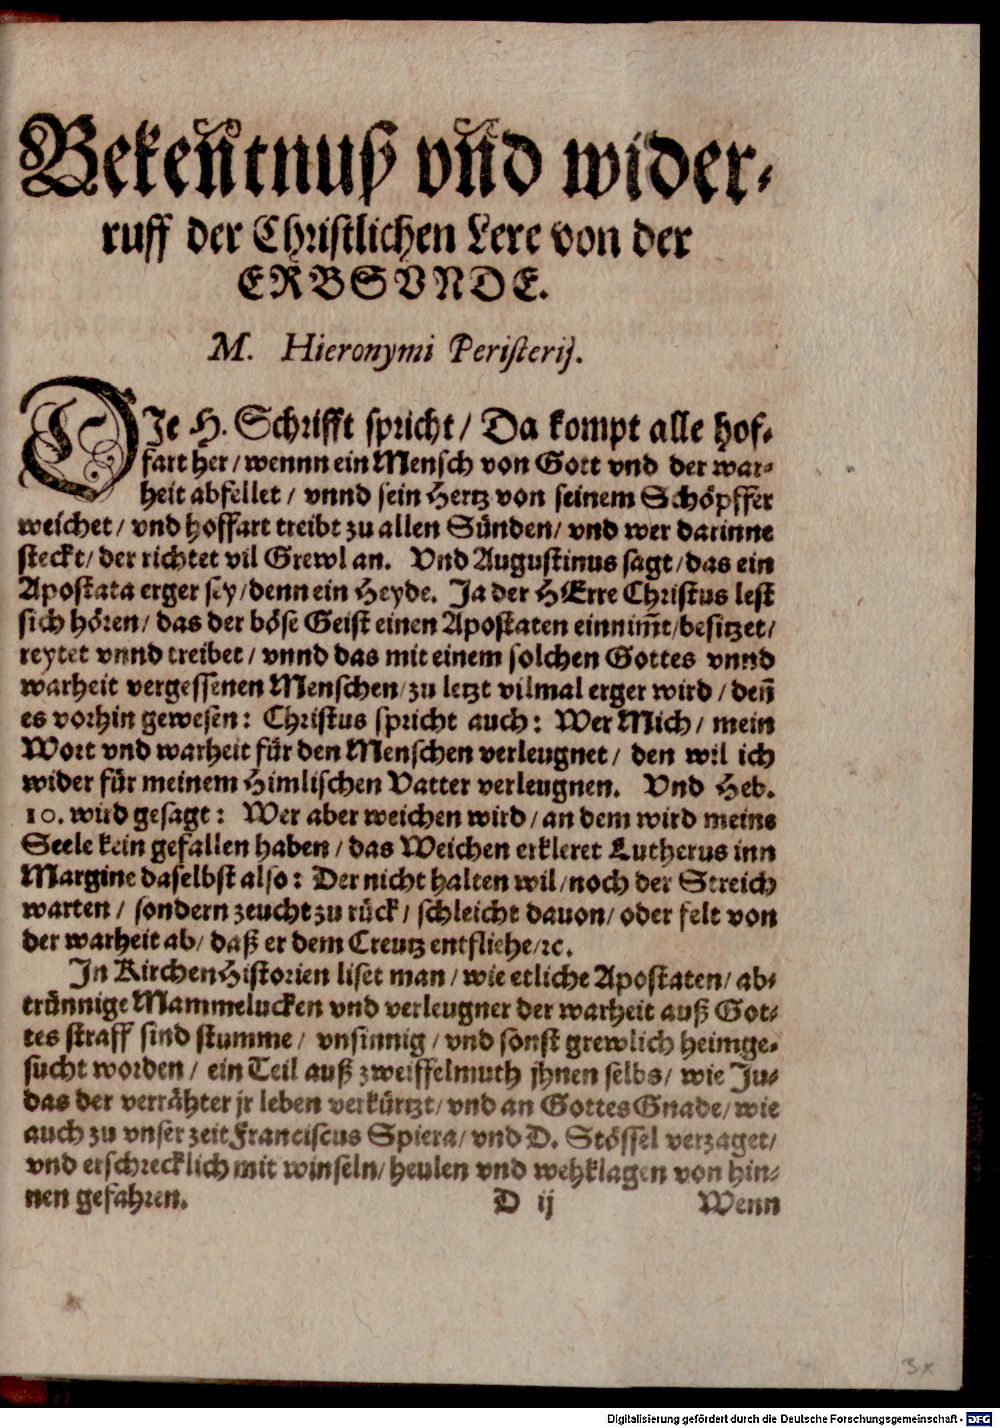 Bekeñtnuß vñd wider-
ruff der Christlichen Lere von der
ERBSVNDE.
M. Hieronymi Peristerij.
DIe H. Schrifft spricht / Da kompt alle hof-
fart her / wennn ein Mensch von Gott vnd der war-
heit abfellet / vnnd sein Hertz von seinem Schöpffer
weichet / vnd hoffart treibt zu allen Sünden / vnd wer darinne
steckt / der richtet vil Grewl an. Vnd Augustinus sagt / das ein
Apostata erger sey / denn ein Heyde. Ja der HErre Christus lest
sich hören / das der böse Geist einen Apostaten einnim̃t / besitzet /
reytet vnnd treibet / vnnd das mit einem solchen Gottes vnnd
warheit vergessenen Menschen / zu letzt vilmal erger wird / deñ
es vorhin gewesen: Christus spricht auch: Wer Mich / mein
Wort vnd warheit für den Menschen verleugnet / den wil ich
wider für meinem Himlischen Vatter verleugnen. Vnd Heb.
10. wird gesagt: Wer aber weichen wird / an dem wird meine
Seele kein gefallen haben / das Weichen erkleret Lutherus inn
Margine daselbst also: Der nicht halten wil / noch der Streich
warten / sondern zeucht zu rück / schleicht dauon / oder felt von
der warheit ab / daß er dem Creutz entfliehe / ꝛc.
In Kirchen Historien liset man / wie etliche Apostaten / ab-
trünnige Mammelucken vnd verleugner der warheit auß Got-
tes straff sind stumme / vnsinnig / vnd sonst grewlich heimge-
sucht worden / ein Teil auß zweiffelmuth jhnen selbs / wie Ju-
das der verrähter jr leben verkürtzt / vnd an Gottes Gnade / wie
auch zu vnser zeit Franciscus Spiera / vnd D. Stössel verzaget /
vnd erschrecklich mit winseln / heulen vnd wehklagen von hin-
nen gefahren.
D ij
Wenn
3x
Digitalisierung gefördert durch die Deutsche Forschungsgemeinschaft - DFG